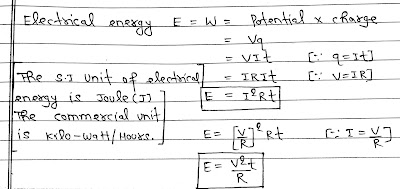 Electrical energy E = W = Potential x charge
= Vq
= VIt [∵ q=It]
The S.I unit of electrical energy is Joule (J)
= IRIt [∵ V=IR]
E = I²Rt
The commercial unit is Kilo-Watt/Hours.
E = [V/R]² Rt [∵ I = V/R]
E = V²t/R